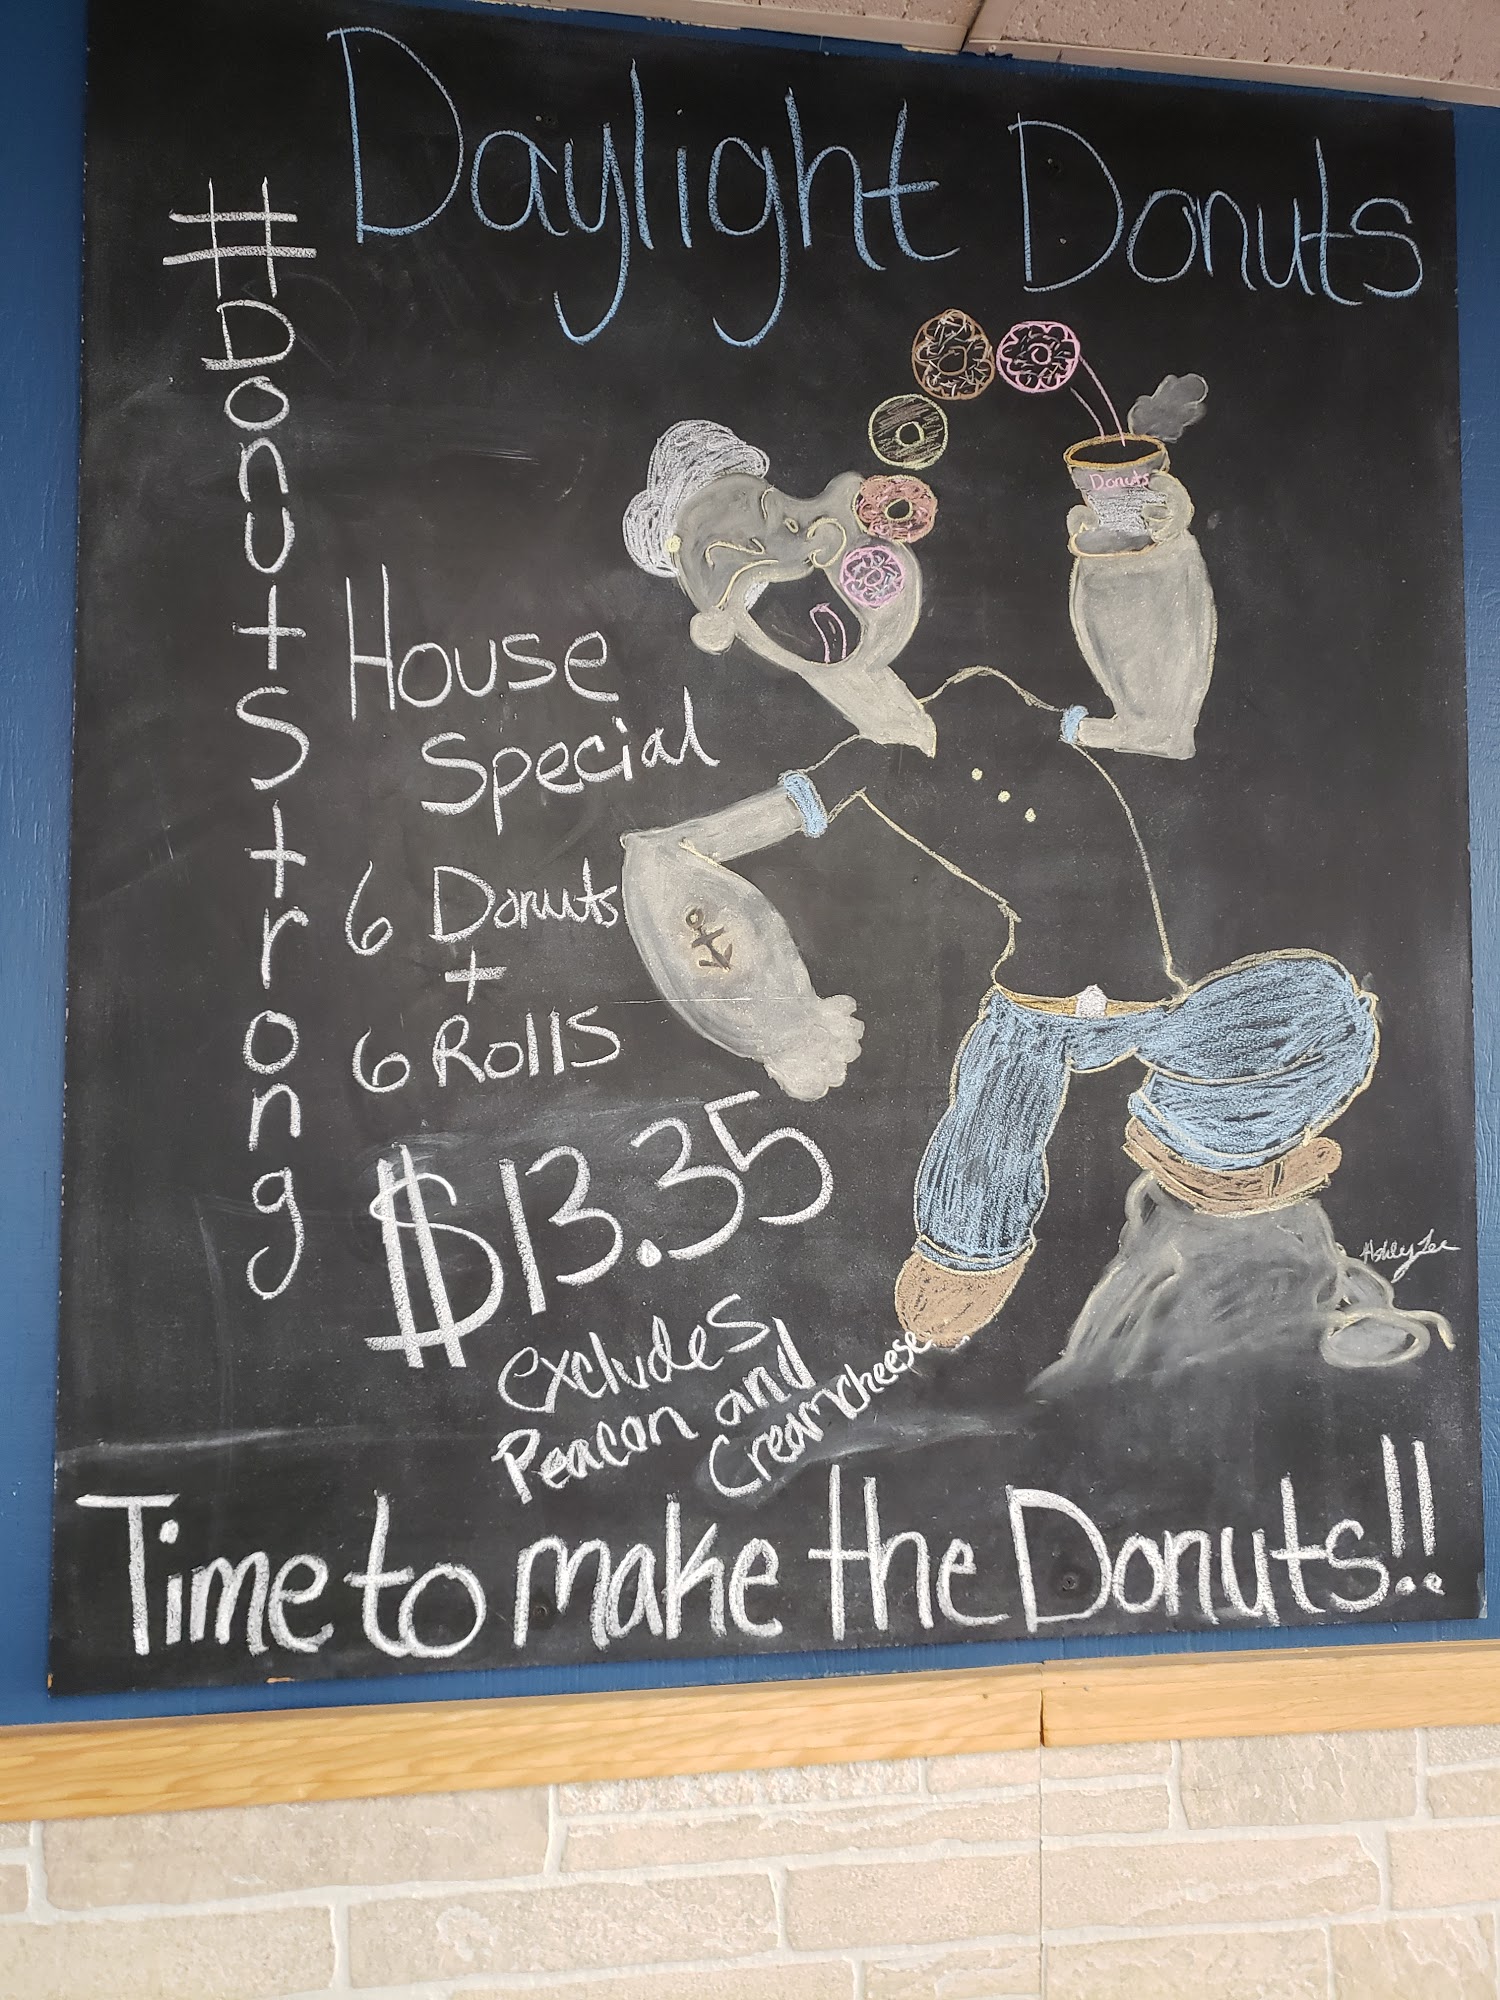 Daylight Donuts
#DonutStrong
House
Special
6 Donuts
+
6 Rolls
$13.35
excludes
Peacan and
Creamcheese
Donuts
Ashley Lee
Time to make the Donuts!!